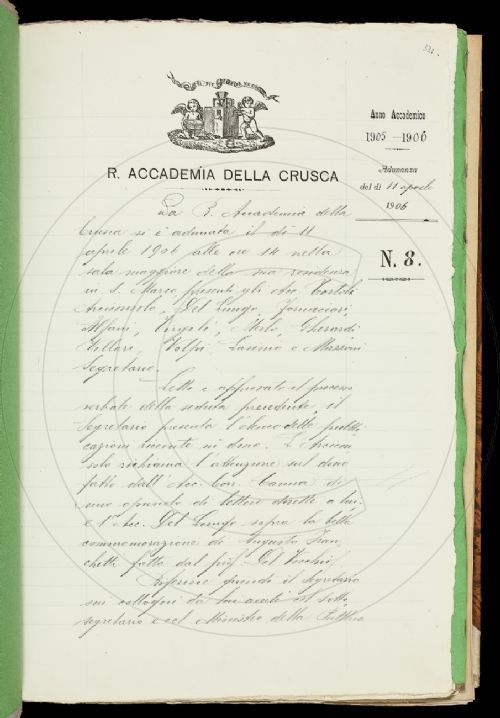 Anno Accademico
1905 - 1906
Adunanza
del dì 11 aprile
1906
N. 8.
R. ACCADEMIA DELLA CRUSCA
La R. Accademia della
Crusca si è adunata il dì 11
aprile 1906 alle ore 14 nella
sala maggiore della sua residenza
in S. Marco presenti gli Acc. Tortoli
Arciconsolo, Del Lungo, Fornaciari,
Alfani, Vitelli, Gherardi
Villari, Volpi, Lasinio e Mazzoni
Segretario.
Letto e approvato il processo
verbale della seduta precedente, il
Segretario presenta l'elenco delle pubbli
cazioni ricevute in dono. L'Arcicon
solo richiama l'attenzione sul dono
fatto dall'Acc. Cor. Canna di
suo opuscolo di lettere dirette a lui,
e l'Acc. Del Lungo sopra la bella
commemorazione di Augusto Fran
chetti fatta dal prof. Del Vecchio.
Riferisce quindi il Segretario
sui colloqui da lui avuti col Sotto
segretario e col Ministro della Pubblica